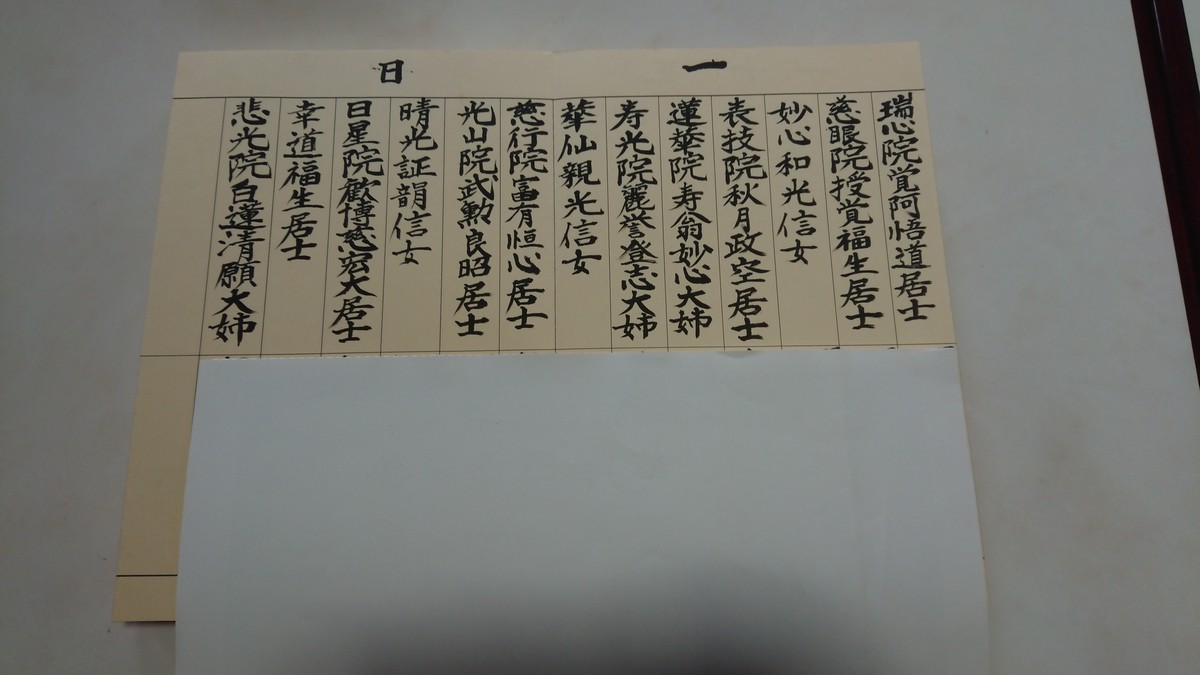 一日
瑞心院覚阿悟道居士
慈眼院授覚福生居士
妙心和光信女
表技院秋月政空居士
蓮華院寿翁妙心大姉
寿光院麗誉登志大姉
華仙親光信女
慈行院富有恒心居士
光山院武勲良昭居士
晴光証韻信女
日星院歓博慈宏大居士
幸道福生居士
悲光院白蓮清願大姉